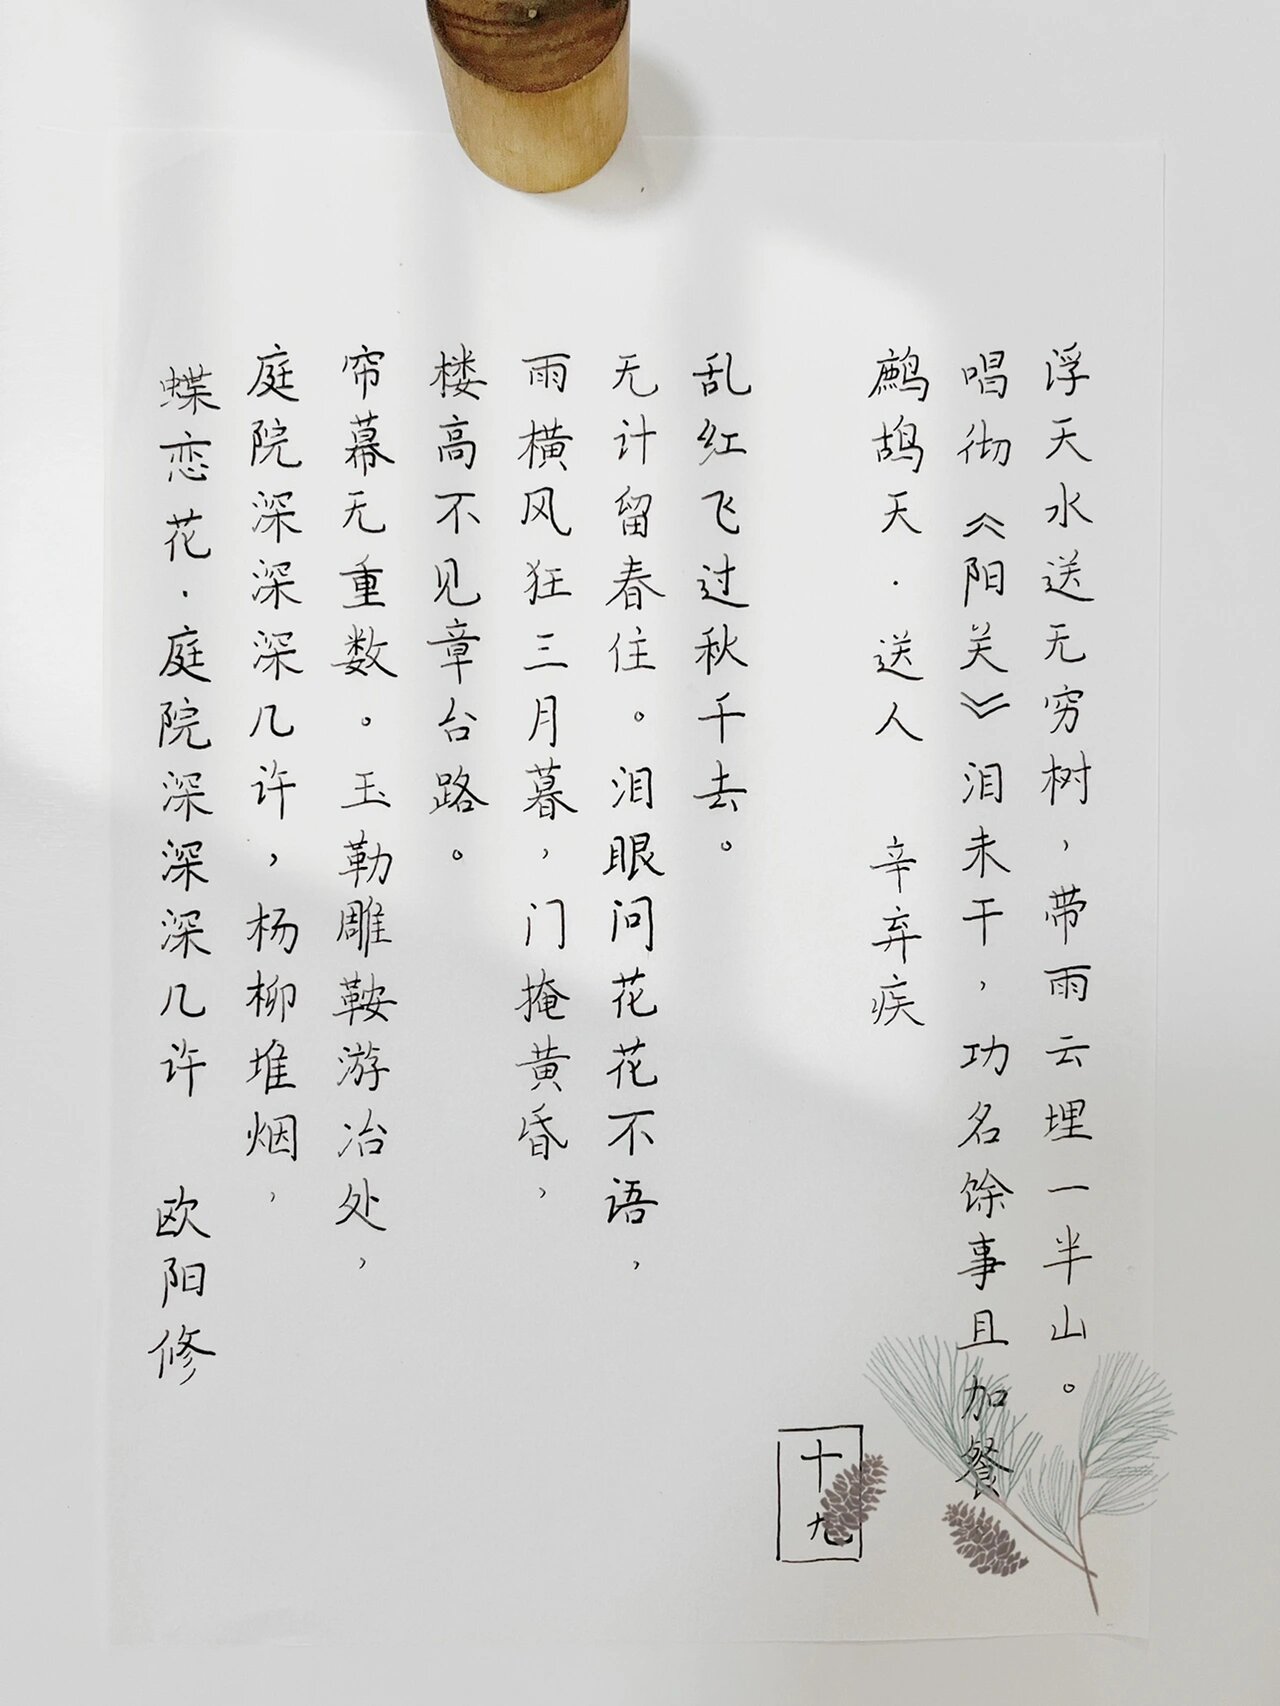 蝶恋花·庭院深深深几许 欧阳修
庭院深深深几许,杨柳堆烟,
帘幕无重数。玉勒雕鞍游冶处,
楼高不见章台路。
雨横风狂三月暮,门掩黄昏,
无计留春住。泪眼问花花不语,
乱红飞过秋千去。
鹧鸪天·送人 辛弃疾
唱彻《阳关》泪未干,功名馀事且加餐
浮天水送无穷树,带雨云埋一半山。
十九